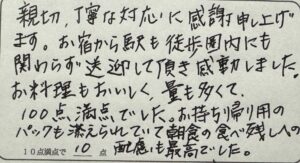 親切、丁寧な対応に感謝申し上げ
ます。お宿から駅も徒歩圏内にも
関わらず送迎して頂き感動しました。
お料理もおいしく、量も多くて、
100点満点でした。お持ち帰り用の
パックも添えられていて朝食の食べ残しへの
10点満点で 10 点 配慮も最高でした。